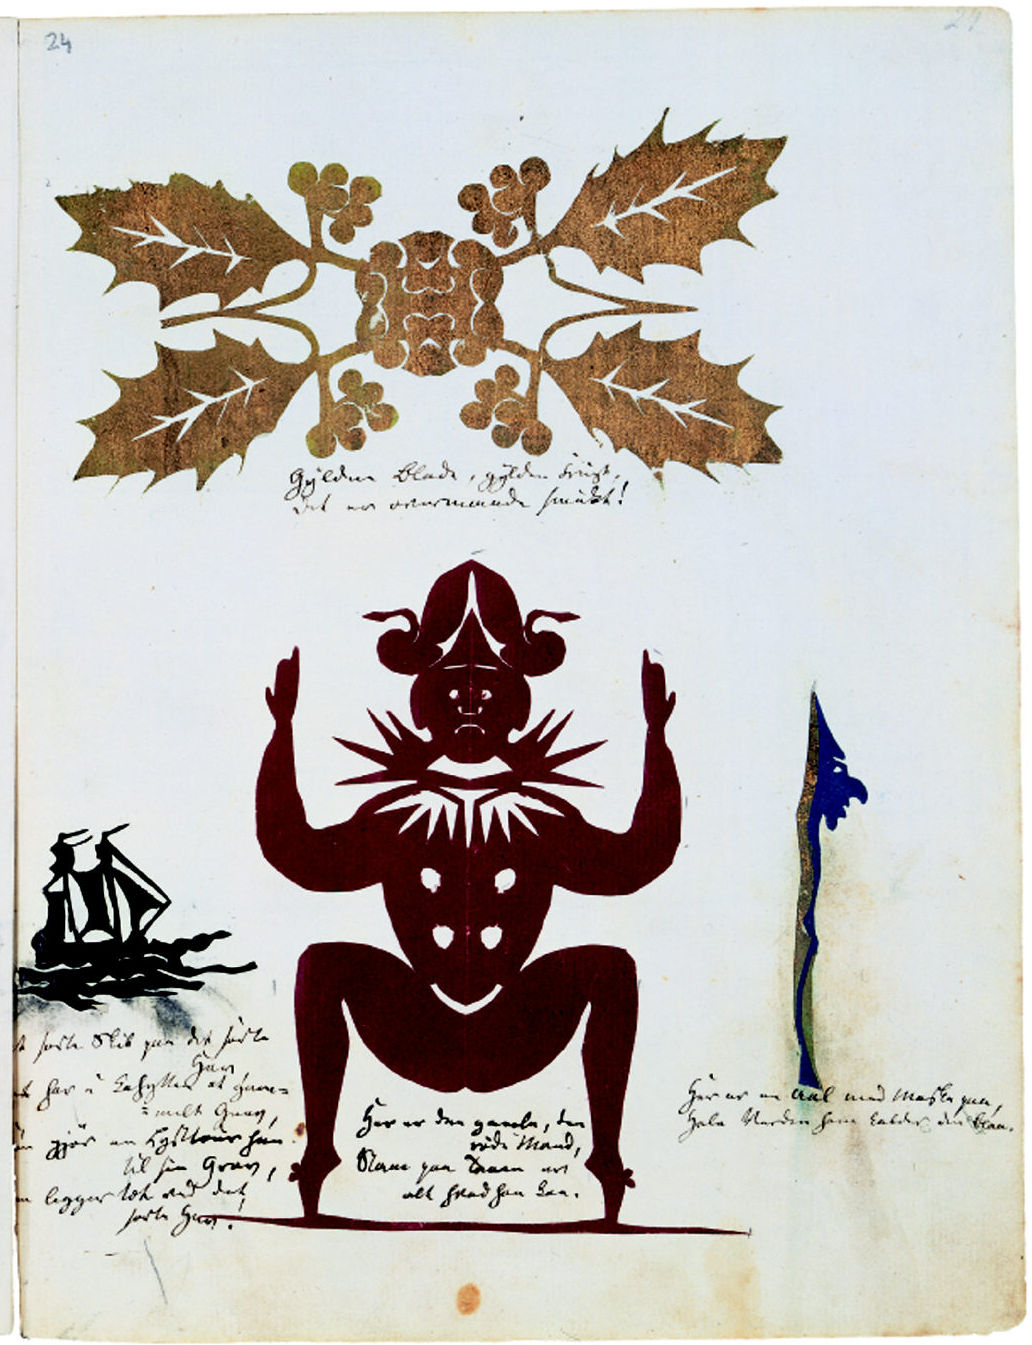 24
24
Gyldne Blade, gylden Frugt,
det er overmaade smukt!
sorte Skib paa det sorte
Hav,
har i Kahytten et gam=
=melt Grav,
gjør en Lysttour hen
til sin Grav,
ligger tæt ved det
sorte Hav!
Her er den gamle, den
røde Mand,
Staae paa Taaen er
alt hvad han kan.
Her er en Aal med Maske paa,
Hele Verden ham kalder den blaa.